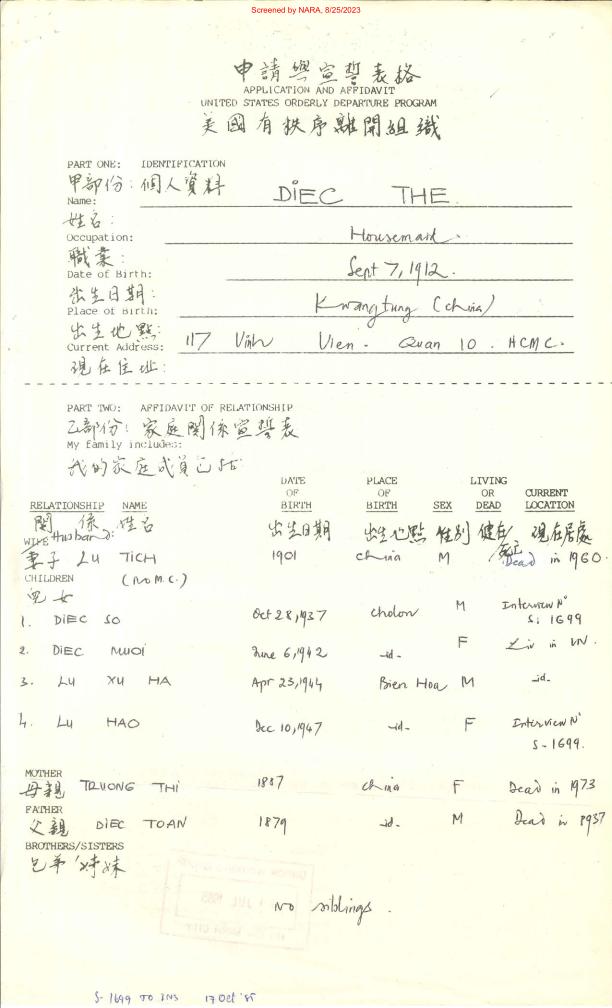 Screened by NARA, 8/25/2023
申請與宣誓表格
APPLICATION AND AFFIDAVIT
UNITED STATES ORDERLY DEPARTURE PROGRAM
美國有秩序離開組織
PART ONE: IDENTIFICATION
甲部份: 個人資料
Name: DIEC THE
姓名:
Occupation: Housemaid.
職業:
Date of Birth: Sept 7, 1912.
出生日期:
Place of Birth: Kwangtung (China)
出生地點:
Current Address: 117 Vinh Vien. Quan 10. HCMC.
現在住址:
PART TWO: AFFIDAVIT OF RELATIONSHIP
乙部份: 家庭関係宣誓表
My family includes:
我的家庭成員包括
RELATIONSHIP NAME DATE OF BIRTH PLACE OF BIRTH SEX LIVING OR DEAD CURRENT LOCATION
関係 姓名 出生日期 出生地點 性別 健在/死亡 現在居處
WIFE Husband:
妻子 LU TICH 1901 China M Dead in 1960.
CHILDREN (No M.C.)
兒女
1. DIEC SO Oct 28, 1937 Cholon M Interview N° S. 1699
2. DIEC MUOI June 6, 1942 -id- F Liv in VN.
3. LU XU HA Apr 23, 1944 Bien Hoa M -id-
4. LU HAO Dec 10, 1947 -id- F Interview N° S-1699.
MOTHER
母親 TRUONG THI 1887 China F Dead in 1973
FATHER
父親 DIEC TOAN 1879 -id- M Dead in 1937
BROTHERS/SISTERS
兄弟/姊妹
No siblings.
S-1699 TO INS 17 Oct '85